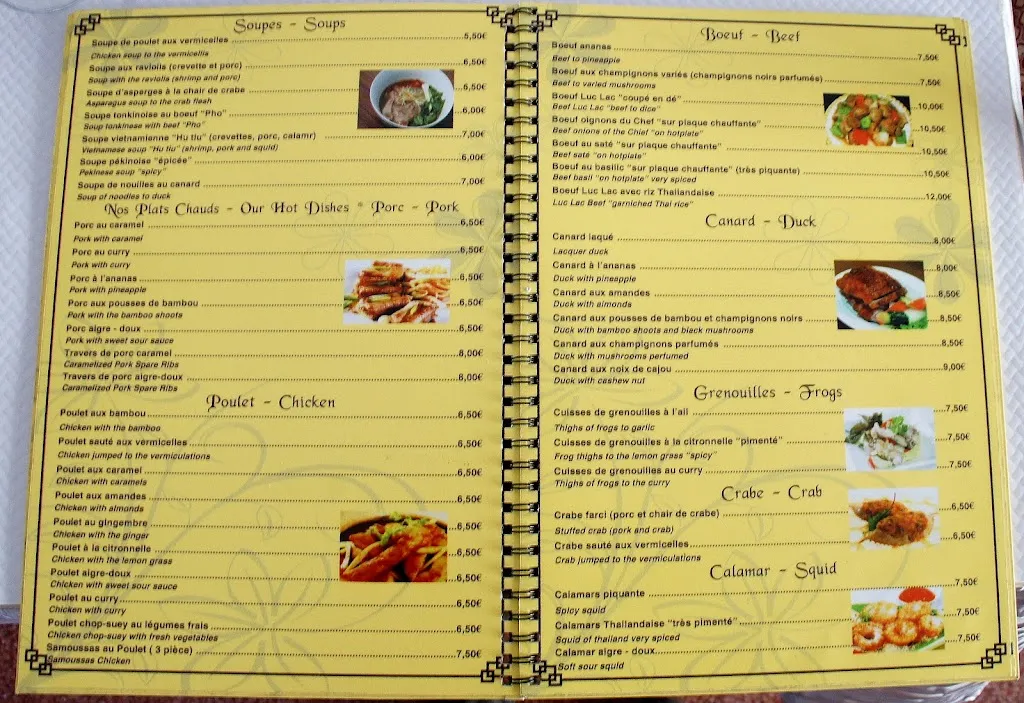 Soupes - Soups
Soupe de poulet aux vermicelles 5,50€
Chicken soup to the vermicellis
Soupe aux raviolis (crevette et porc) 6,50€
Soup with the raviolis (shrimp and porc)
Soupe d'asperges à la chair de crabe 6,50€
Asparagus soup to the crab flesh
Soupe tonkinoise au boeuf "Pho" 6,00€
Soup tonkinese with beef "Pho"
Soupe vietnamienne "Hu tiu" (crevettes, porc, calamr) 7,00€
Vietnamese soup "Hu tiu" (shrimp, pork and squid)
Soupe pékinoise "épicée" 6,00€
Pekinese soup "spicy"
Soupe de nouilles au canard 7,00€
Soup of noodles to duck
Nos Plats Chauds - Our Hot Dishes * Porc - Pork
Porc au caramel 6,50€
Pork with caramel
Porc au curry 6,50€
Pork with curry
Porc à l'ananas 6,50€
Pork with pineapple
Porc aux pousses de bambou 6,50€
Pork with the bamboo shoots
Porc aigre - doux 6,50€
Pork with sweet sour sauce
Travers de porc caramel 8,00€
Caramelized Pork Spare Ribs
Travers de porc aigre-doux 8,00€
Caramelized Pork Spare Ribs
Poulet - Chicken
Poulet aux bambou 6,50€
Chicken with the bamboo
Poulet sauté aux vermicelles 6,50€
Chicken jumped to the vermiculations
Poulet aux caramel 6,50€
Chicken with caramels
Poulet aux amandes 6,50€
Chicken with almonds
Poulet au gingembre 6,50€
Chicken with the ginger
Poulet à la citronnelle 6,50€
Chicken with the lemon grass
Poulet aigre-doux 6,50€
Chicken with sweet sour sauce
Poulet au curry 6,50€
Chicken with curry
Poulet chop-suey au légumes frais 6,50€
Chicken chop-suey with fresh vegetables
Samoussas au Poulet ( 3 pièce) 7,50€
Samoussas Chicken
Boeuf - Beef
Boeuf ananas 7,50€
Beef to pineapple
Boeuf aux champignons variés (champignons noirs parfumés) 7,50€
Beef to varied mushrooms
Boeuf Luc Lac "coupé en dé" 10,00€
Beef Luc Lac "beef to dice"
Boeuf oignons du Chef "sur plaque chauffante" 10,50€
Beef onions of the Chief "on hotplate"
Boeuf au saté "sur plaque chauffante" 10,50€
Beef saté "on hotplate"
Boeuf au basilic "sur plaque chauffante" (très piquante) 10,50€
Beef basil "on hotplate" very spiced
Boeuf Luc Lac avec riz Thaïlandaise 12,00€
Luc Lac Beef "garniched Thai rice"
Canard - Duck
Canard laqué 8,00€
Lacquer duck
Canard à l'ananas 8,00€
Duck with pineapple
Canard aux amandes 8,50€
Duck with almonds
Canard aux pousses de bambou et champignons noirs 8,50€
Duck with bamboo shoots and black mushrooms
Canard aux champignons parfumés 8,50€
Duck with mushrooms perfumed
Canard aux noix de cajou 9,00€
Duck with cashew nut
Grenouilles - Frogs
Cuisses de grenouilles à l'ail 7,50€
Thighs of frogs to garlic
Cuisses de grenouilles à la citronnelle "pimenté" 7,50€
Frog thighs to the lemon grass "spicy"
Cuisses de grenouilles au curry 7,50€
Thighs of frogs to the curry
Crabe - Crab
Crabe farci (porc et chair de crabe) 6,50€
Stuffed crab (pork and crab)
Crabe sauté aux vermicelles 6,50€
Crab jumped to the vermiculations
Calamar - Squid
Calamars piquante 7,50€
Spicy squid
Calamars Thaïlandaise "très pimenté" 7,50€
Squid of thailand very spiced
Calamar aigre - doux 7,50€
Soft sour squid